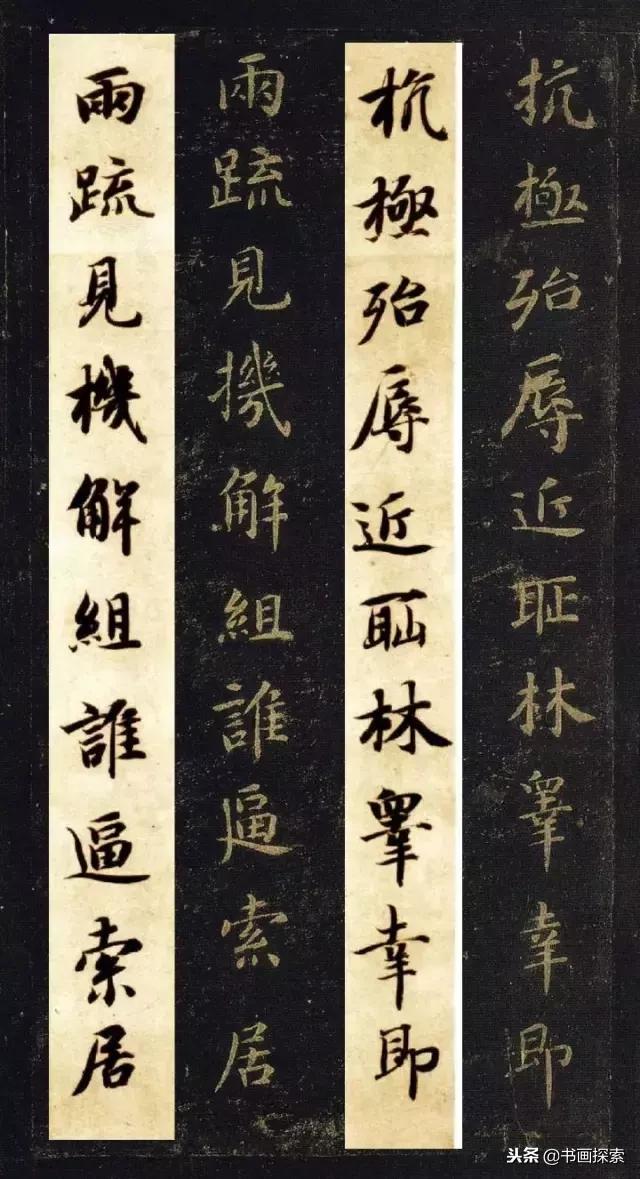 抗極殆辱近耻林睾幸即
抗極殆辱近耻林睾幸即
兩疏見機解組誰逼索居
兩疏見機解組誰逼索居
头条 @书画探索